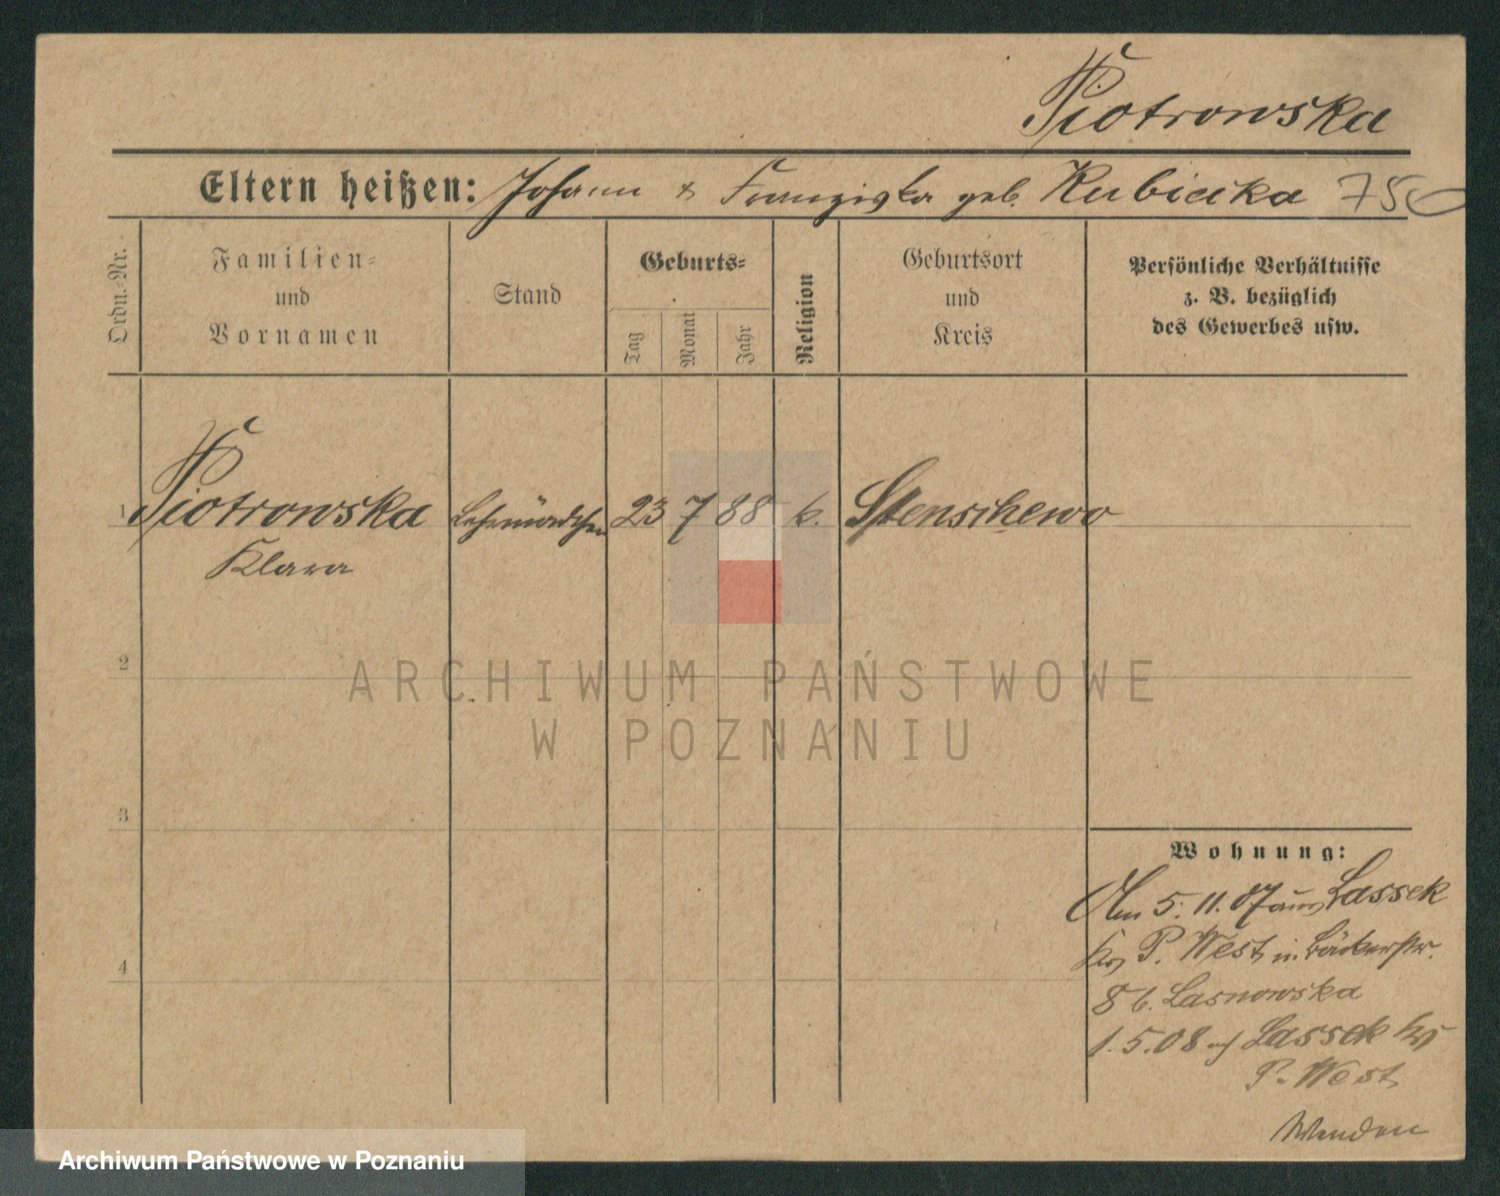 Piotrowska
Eltern heißen: Johann & Franziska geb. Kubicka 750
Ordn.-Nr.
Familien-
und
Vornamen
Stand
Geburts-
Tag
Monat
Jahr
Religion
Geburtsort
und
Kreis
Persönliche Verhältnisse
z. B. bezüglich
des Gewerbes usw.
1 Piotrowska Lehrmädchen 23 7 88 k. Stenschewo
Klara
2
3
4
Wohnung:
Am 5. 11. 07 aus Lassek
Krs P. West in Bäckerstr.
8 b. Lasnowska
1. 5. 08 auf Lassek Krs
P. West
Wenden
ARCHIWUM PAŃSTWOWE
W POZNANIU
Archiwum Państwowe w Poznaniu